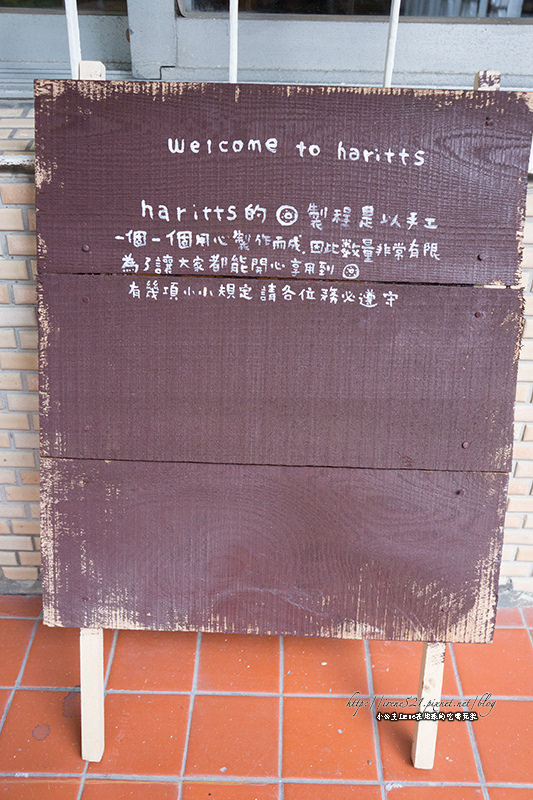 welcome to haritts
haritts的 製程是以手工
一個一個用心製作而成 因此數量非常有限
為了讓大家都能開心享用到
有幾項小小規定請各位務必遵守
http://irene521.pixnet.net/blog